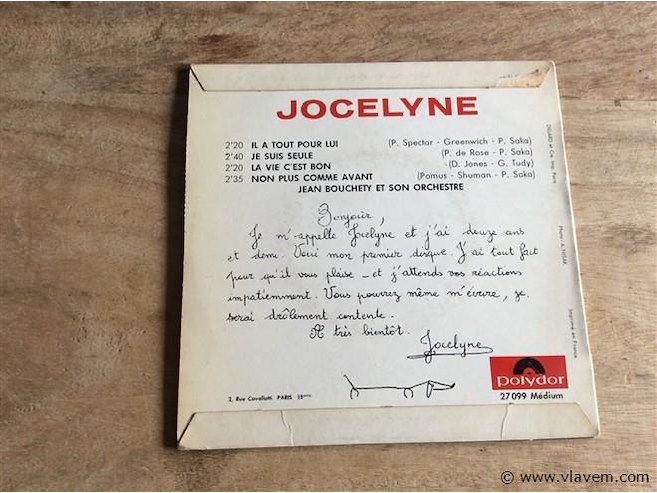 JOCELYNE
2'20 IL A TOUT POUR LUI (P. Spector - Greenwich - P. Saka)
2'40 JE SUIS SEULE (P. de Rose - P. Saka)
2'20 LA VIE C'EST BON (D. Jones - G. Tudy)
2'35 NON PLUS COMME AVANT (Pomus - Shuman - P. Saka)
JEAN BOUCHETY ET SON ORCHESTRE
Bonjour,
Je m'appelle Jocelyne et j'ai douze ans
et demi. Voici mon premier disque. J'ai tout fait
pour qu'il vous plaise - et j'attends vos réactions
impatiemment. Vous pouvez même m'écrire, je
serai drôlement contente.
A très bientôt.
Jocelyne
Polydor
27 099 Médium
2, Rue Cavallotti PARIS 18ème
et Cie, Imp. Paris
Photo A. NISAK
Imprimé en France
© www.vlavem.com